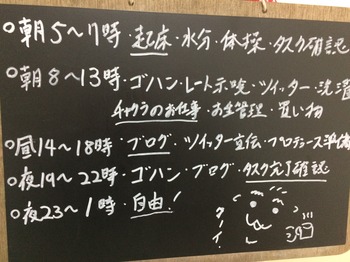 ○朝5〜7時・起床・水分・体操・タスク確認
○朝8〜13時・ゴハン・レート示唆・ツイッター・洗濯
チャクラのお仕事・お金管理・買い物
○昼14〜18時・ブログ・ツイッター宣伝・プロデュース準備
○夜19〜22時・ゴハン・ブログ・タスク完了確認
○夜23〜1時・自由!
クーイ!